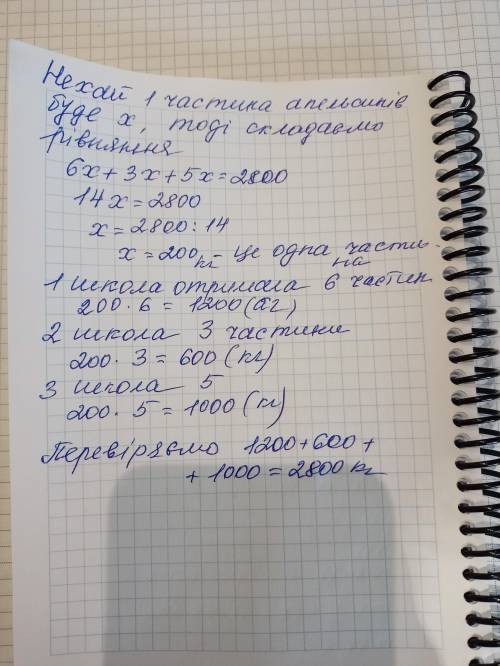 Нехай 1 частина апельсинів
буде х, тоді складаємо
рівняння
6х + 3х + 5х = 2800
14х = 2800
х = 2800 : 14
х = 200 кг - це одна части-
на
1 школа отримала 6 частин
200 · 6 = 1200 (кг)
2 школа 3 частини
200 · 3 = 600 (кг)
3 школа 5
200 · 5 = 1000 (кг)
Перевіряємо 1200 + 600 +
+ 1000 = 2800 кг